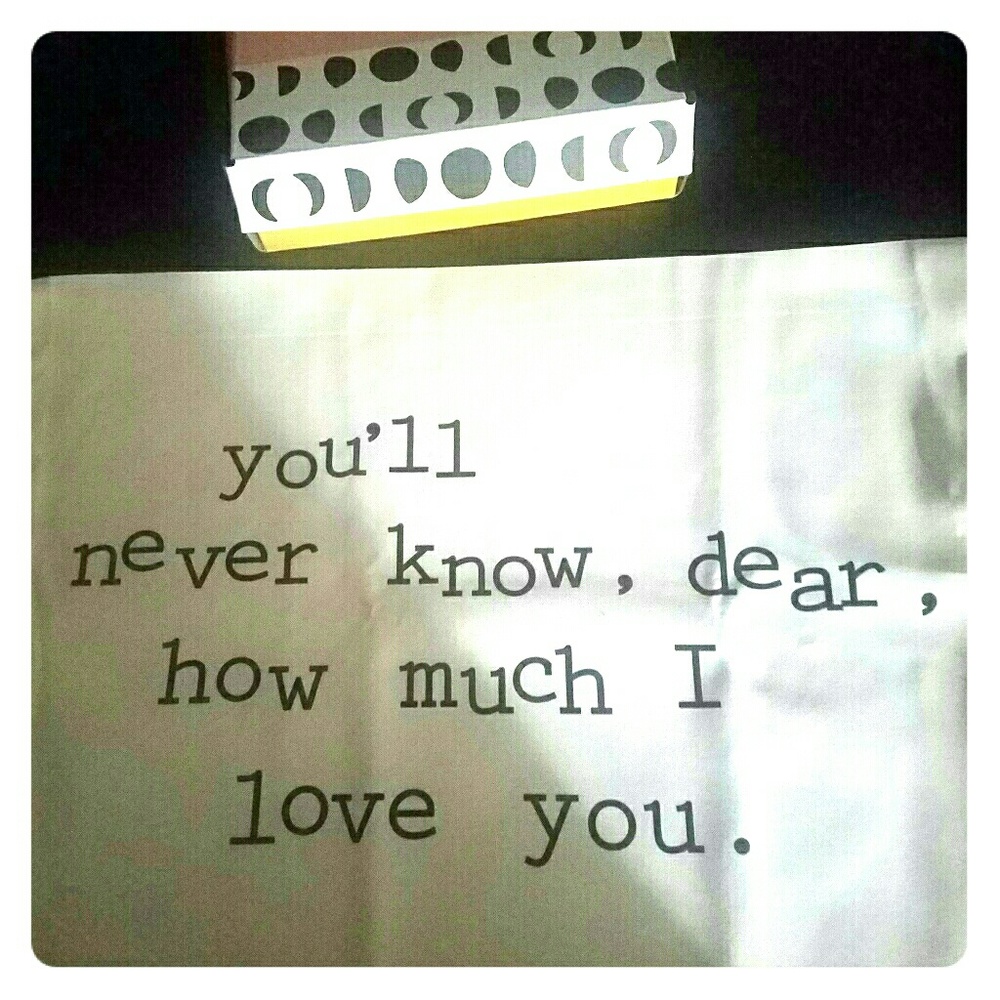 you’ll
never know, dear,
how much I
love you.